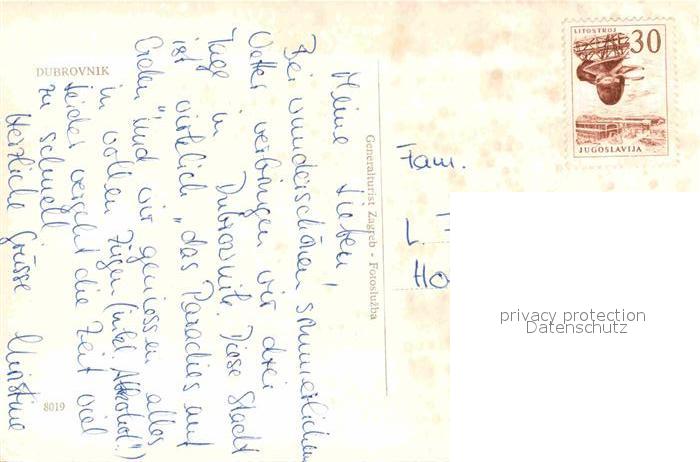 DUBROVNIK
Meine Lieben!
Bei wunderschönem sommerlichem
Wetter verbringen wir drei
Tage in Dubrovnik. Diese Stadt
ist wirklich „das Paradies auf
Erden" und wir geniessen alles
in vollen Zügen (inkl. Alkohol!)
Leider vergeht die Zeit viel
zu schnell.
Herzliche Grüsse Christine
8019
Generalturist Zagreb - Fotoslužba
LITOSTROJ
30
JUGOSLAVIJA
Fam.
L.
Ho
privacy protection
Datenschutz